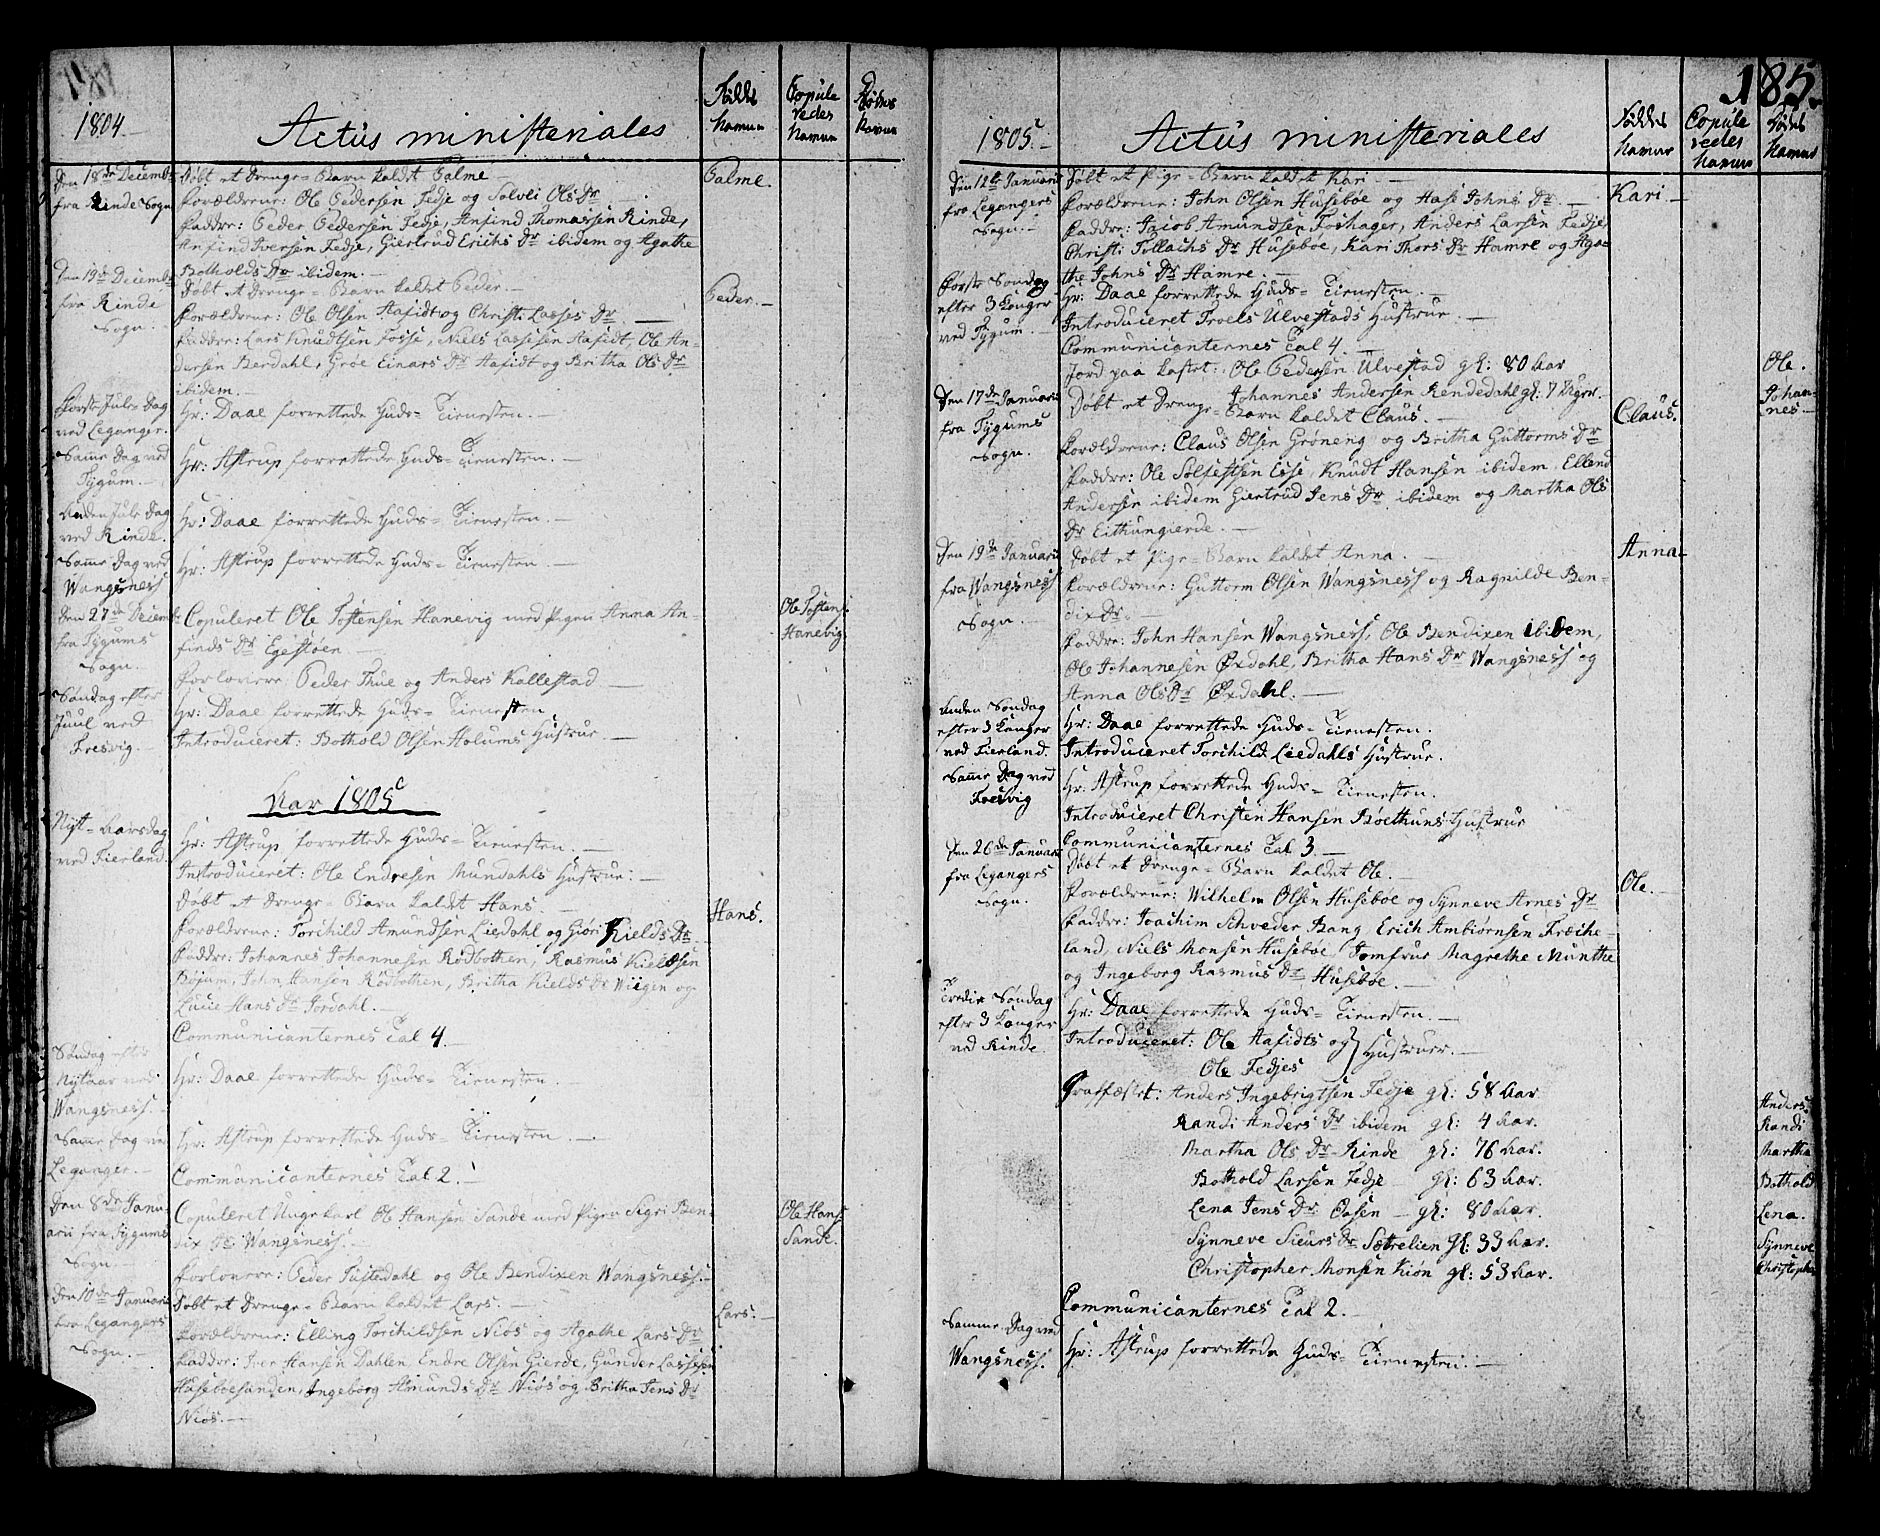 1804
Actus ministeriales
Føddes Navne
Copulevedes Navne
Dødes Navne
Den 18de Decemb:
fra Rinde Sogn
Døbt et Drenge-Barn kaldet Palme
Palme.
Forældrene: Ole Pedersen Fedje og Solvei Ols Dr
Faddre: Peder Pedersen Fedje, Anfind Thomassen Rinde,
Anfind Iversen Fedje, Giertrud Erichs Dr ibidem og Agathe
Botholds Dr ibidem.
Den 19de Decemb:
fra Rinde
Sogn.
Døbt et Drenge-Barn kaldet Peder.
Peder.
Forældrene: Ole Olsen Hafidt og Christi Lasses Dr
Faddre: Lars Knudtsen Fosse, Niels Lassesen Hafidt, Ole An-
dersen Berdahl, Grøe Einars Dr Hafidt og Britha Ols Dr
ibidem.
Første Jule Dag
ved Leganger.
Hr: Daae forrettede Guds-Tienesten.
Samme Dag ved
Tygum.
Hr: Astrup forrettede Guds-Tienesten.
Anden Jule Dag
ved Rinde.
Hr: Daae forrettede Guds-Tienesten.
Samme Dag ved
Wangsness
Hr: Astrup forrettede Guds-Tienesten.
Den 27de Decemb:
fra Tygums
Sogn.
Copuleret Ole Tostensen Hanevig med Pigen Anna An-
finds Dr Egestøen
Ole Tostens:
Hanevig
Forlovere: Peder Thue og Anders Kallestad
Søndag efter
Juul ved
Fresvig.
Hr: Daae forrettede Guds-Tienesten
Introduceret: Bothold Olsen Holums Hustrue.
Aar 1805
Nyt-Aarsdag
ved Fierland.
Hr: Astrup forrettede Guds-Tienesten.
Introduceret: Ole Endresen Mundahls Hustrue:
Døbt et Drenge-Barn kaldet Hans.
Hans.
Forældrene: Torchild Amundsen Liedahl og Giøri Kields Dr
Faddre: Johannes Johannesen Rødbotten, Rasmus Kieldsen
Bøjum, John Hansen Rødbotten, Britha Kields Dr Wiigen og
Lucie Hans Dr Jordahl.
Communicanternes Tal 4.
Søndag efter
Nytaar ved
Wangsness.
Hr: Daae forrettede Guds-Tienesten.
Samme Dag ved
Leganger.
Hr: Astrup forrettede Guds-Tienesten.
Communicanternes Tal 2.
Den 8de Janu-
arii fra Tygums
Sogn.
Copuleret Ungekarl Ole Hansen Sande med Pigen Sigri Ben-
dix Dr Wangsness.
Ole Hans:
Sande.
Forlovere: Peder Tuftedahl og Ole Bendixen Wangsness.
Den 10de Januarii
fra Legangers
Sogn.
Døbt et Drenge-Barn kaldet Lars.
Lars.
Forældrene: Elling Torchildsen Niøs og Agathe Lars Dr
Faddre: Iver Hansen Dahlen, Endre Olsen Gierde, Gunder Lassesen
Huseboesanden, Ingeborg Amunds Dr Niøs og Britha Jens Dr
Niøs.
185.
1805.
Actus ministeriales
Føddes Navne
Copulevedes Navne
Dødes Navne
Den 12te Januarii
fra Legangers
Sogn.
Døbt et Pige-Barn kaldet Kari
Kari.
Forældrene: John Olsen Husebøe og Hase Johns Dr
Faddre: Jacob Amundsen Foshager, Anders Larsen Fedje,
Christi Tollachs Dr Husebøe, Kari Thors Dr Hamre og Aga-
the Johns Dr Hamre.
Første Søndag
efter 3 Konger
ved Tygum.
Hr: Daae forrettede Guds-Tienesten.
Introduceret Troels Ulvestads Hustrue.
Communicanternes Tal 4
Jord paa kastet: Ole Pedersen Ulvestad gl: 80 Aar
Ole.
Johannes Andersen Rendedahl gl: 7 Uger.
Johan-
nes.
Den 17de Januarii
fra Tygums
Sogn.
Døbt et Drenge-Barn kaldet Claus.
Claus.
Forældrene: Claus Olsen Grøneng og Britha Guttorms Dr
Faddre: Ole Solfestsen Esse, Knudt Hansen ibidem, Ellend
Andersen ibidem Giertrud Jens Dr ibidem og Martha Ols
Dr Eithungierde.
Den 19de Januarii
fra Wangsness
Sogn.
Døbt et Pige-Barn kaldet Anna.
Anna
Forældrene: Guttorm Olsen Wangsness og Ragnilde Ben-
dix Dr.
Faddre: John Hansen Wangsness, Ole Bendixen ibidem,
Ole Johannesen Øxdahl, Britha Hans Dr Wangsness og
Anna Ols Dr Øxdahl.
Anden Søndag
efter 3 Konger
ved Fierland.
Hr: Daae forrettede Guds-Tienesten.
Introduceret Torchild Leedahls Hustrue.
Samme Dag ved
Fresvig
Hr: Astrup forrettede Guds-Tienesten.
Introduceret Christen Hansen Bøethuns Hustrue
Communicanternes Tal 3.
Den 26de Januarii
fra Legangers
Sogn.
Døbt et Drenge-Barn kaldet Ole.
Ole.
Forældrene: Wilhelm Olsen Husebøe og Synneve Arnes Dr
Faddre: Joachim Schveder Bang Erich Ambiørnsen Fræche-
land, Niels Monsen Husebøe, Jomfrue Magrethe Munthe
og Ingeborg Rasmus Dr Husebøe.
Tredie Søndag
efter 3 Konger
ved Rinde.
Hr: Daae forrettede Guds-Tienesten.
Introduceret: Ole Hafidts og
Ole Fedjes
Hustruer.
Graffæstet: Anders Ingebrigtsen Fedje gl: 58 Aar.
Anders.
Randi Anders Dr ibidem gl: 4 Aar.
Randi
Martha Ols Dr Rinde gl: 76 Aar.
Martha
Bothold Larsen Fedje gl: 63 Aar.
Bothold
Lena Jens Dr Oasen gl: 80 Aar.
Lena.
Synneve Sieurs Dr Sætrelien gl: 33 Aar.
Synneve
Christopher Monsen Kiøn gl: 53 Aar.
Christopher
Communicanternes Tal 2.
Samme Dag ved
Wangsness.
Hr: Astrup forrettede Guds-Tienesten.